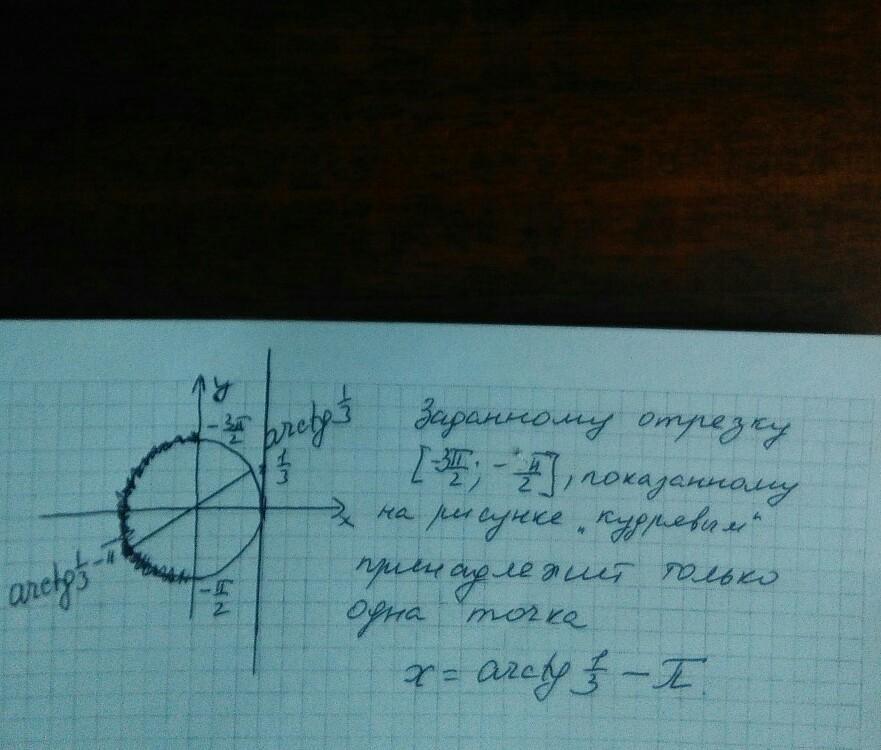 y
-3π/2
arctg 1/3
1/3
x
arctg 1/3 -π
-π/2
Заданному отрезку
[-3π/2; -π/2], показанному
на рисунке „кудрявым“
принадлежит только
одна точка
x = arctg 1/3 - π.